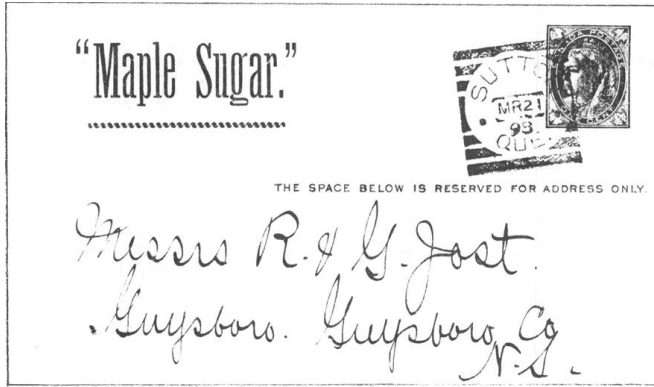 “Maple Sugar.”
SUTTON
MR 21
98
QUE
THE SPACE BELOW IS RESERVED FOR ADDRESS ONLY.
Messrs R. & G. Jost.
Guysboro. Guysboro Co
N.S.